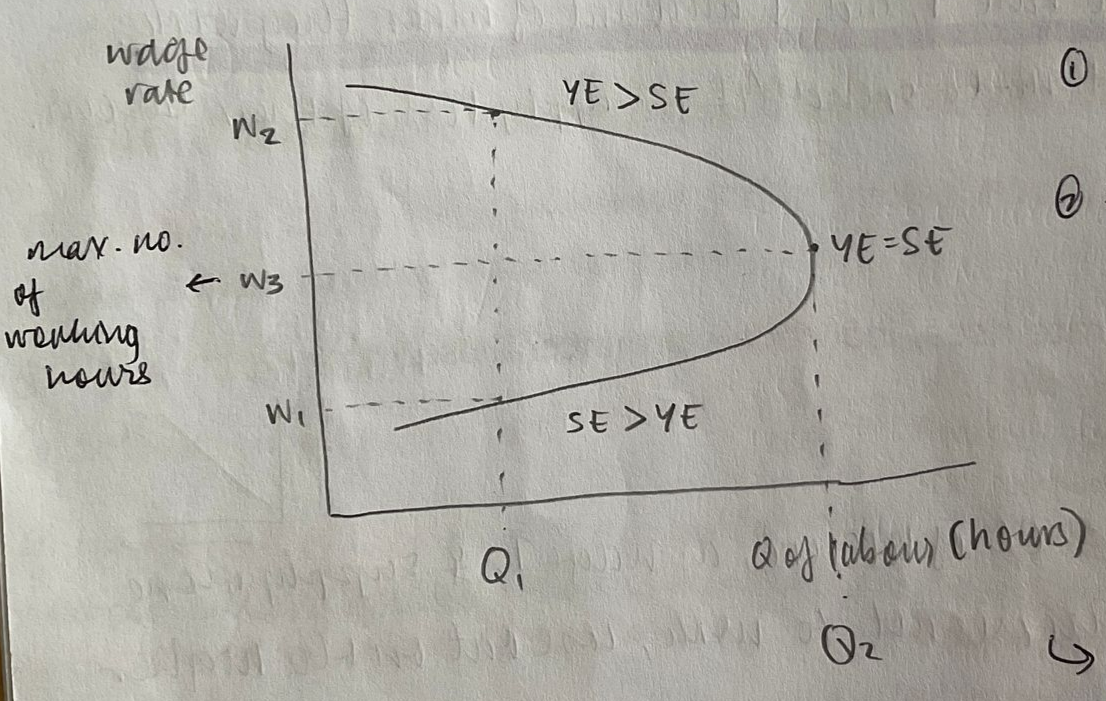 wage
rate
YE > SE
①
W₂
②
max. no.
of
working
hours
← W₃
YE = SE
W₁
SE > YE
Q₁
Q of labour (hours)
Q₂
↳